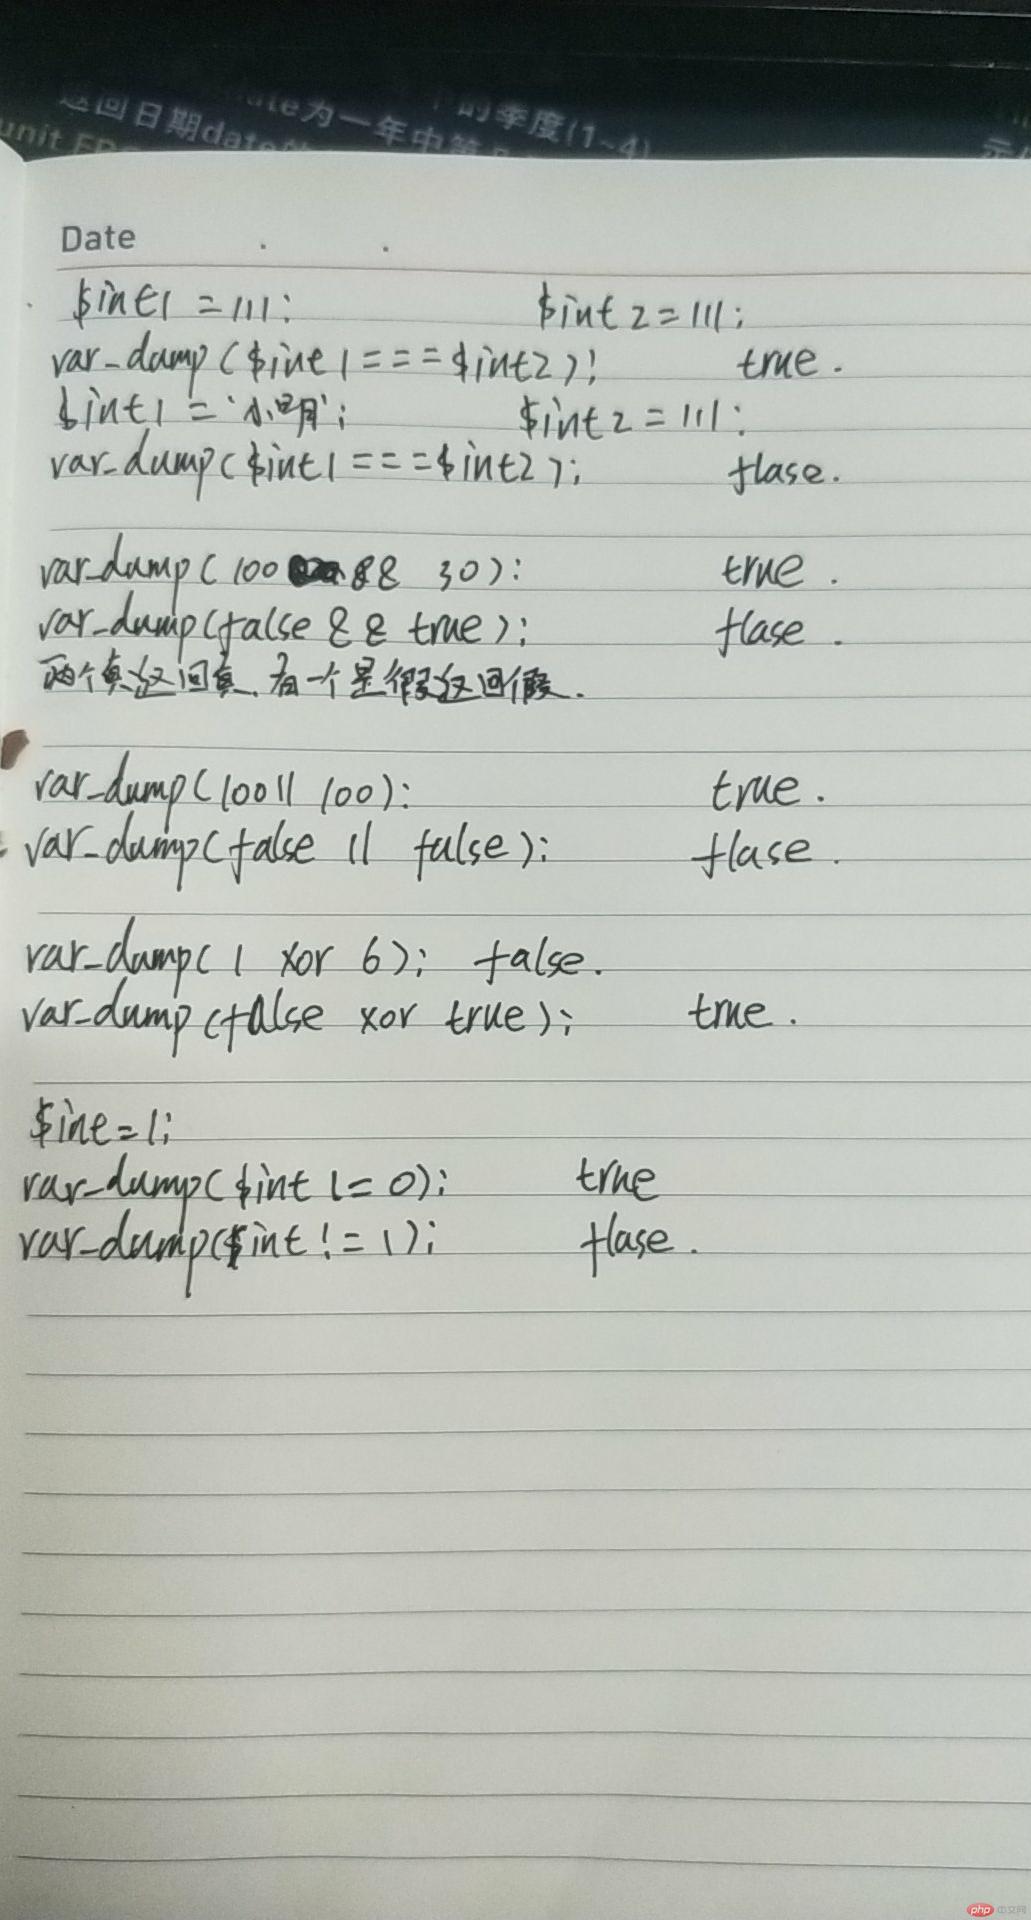 返回日期date
date为一年中第
的季度(1~4)
unit
Date
$int1 = 111; $int2 = 111;
var_dump($int1 === $int2); true.
$int1 = '小明'; $int2 = 111;
var_dump($int1 === $int2); flase.
var_dump(100 && 30); true.
var_dump(false && true); flase.
两个真返回真、有一个是假返回假.
var_dump(100 || 100); true.
var_dump(false || false); flase.
var_dump(1 xor 6); false.
var_dump(false xor true); true.
$int=1;
var_dump($int != 0); true
var_dump($int != 1); flase.
php 中文网